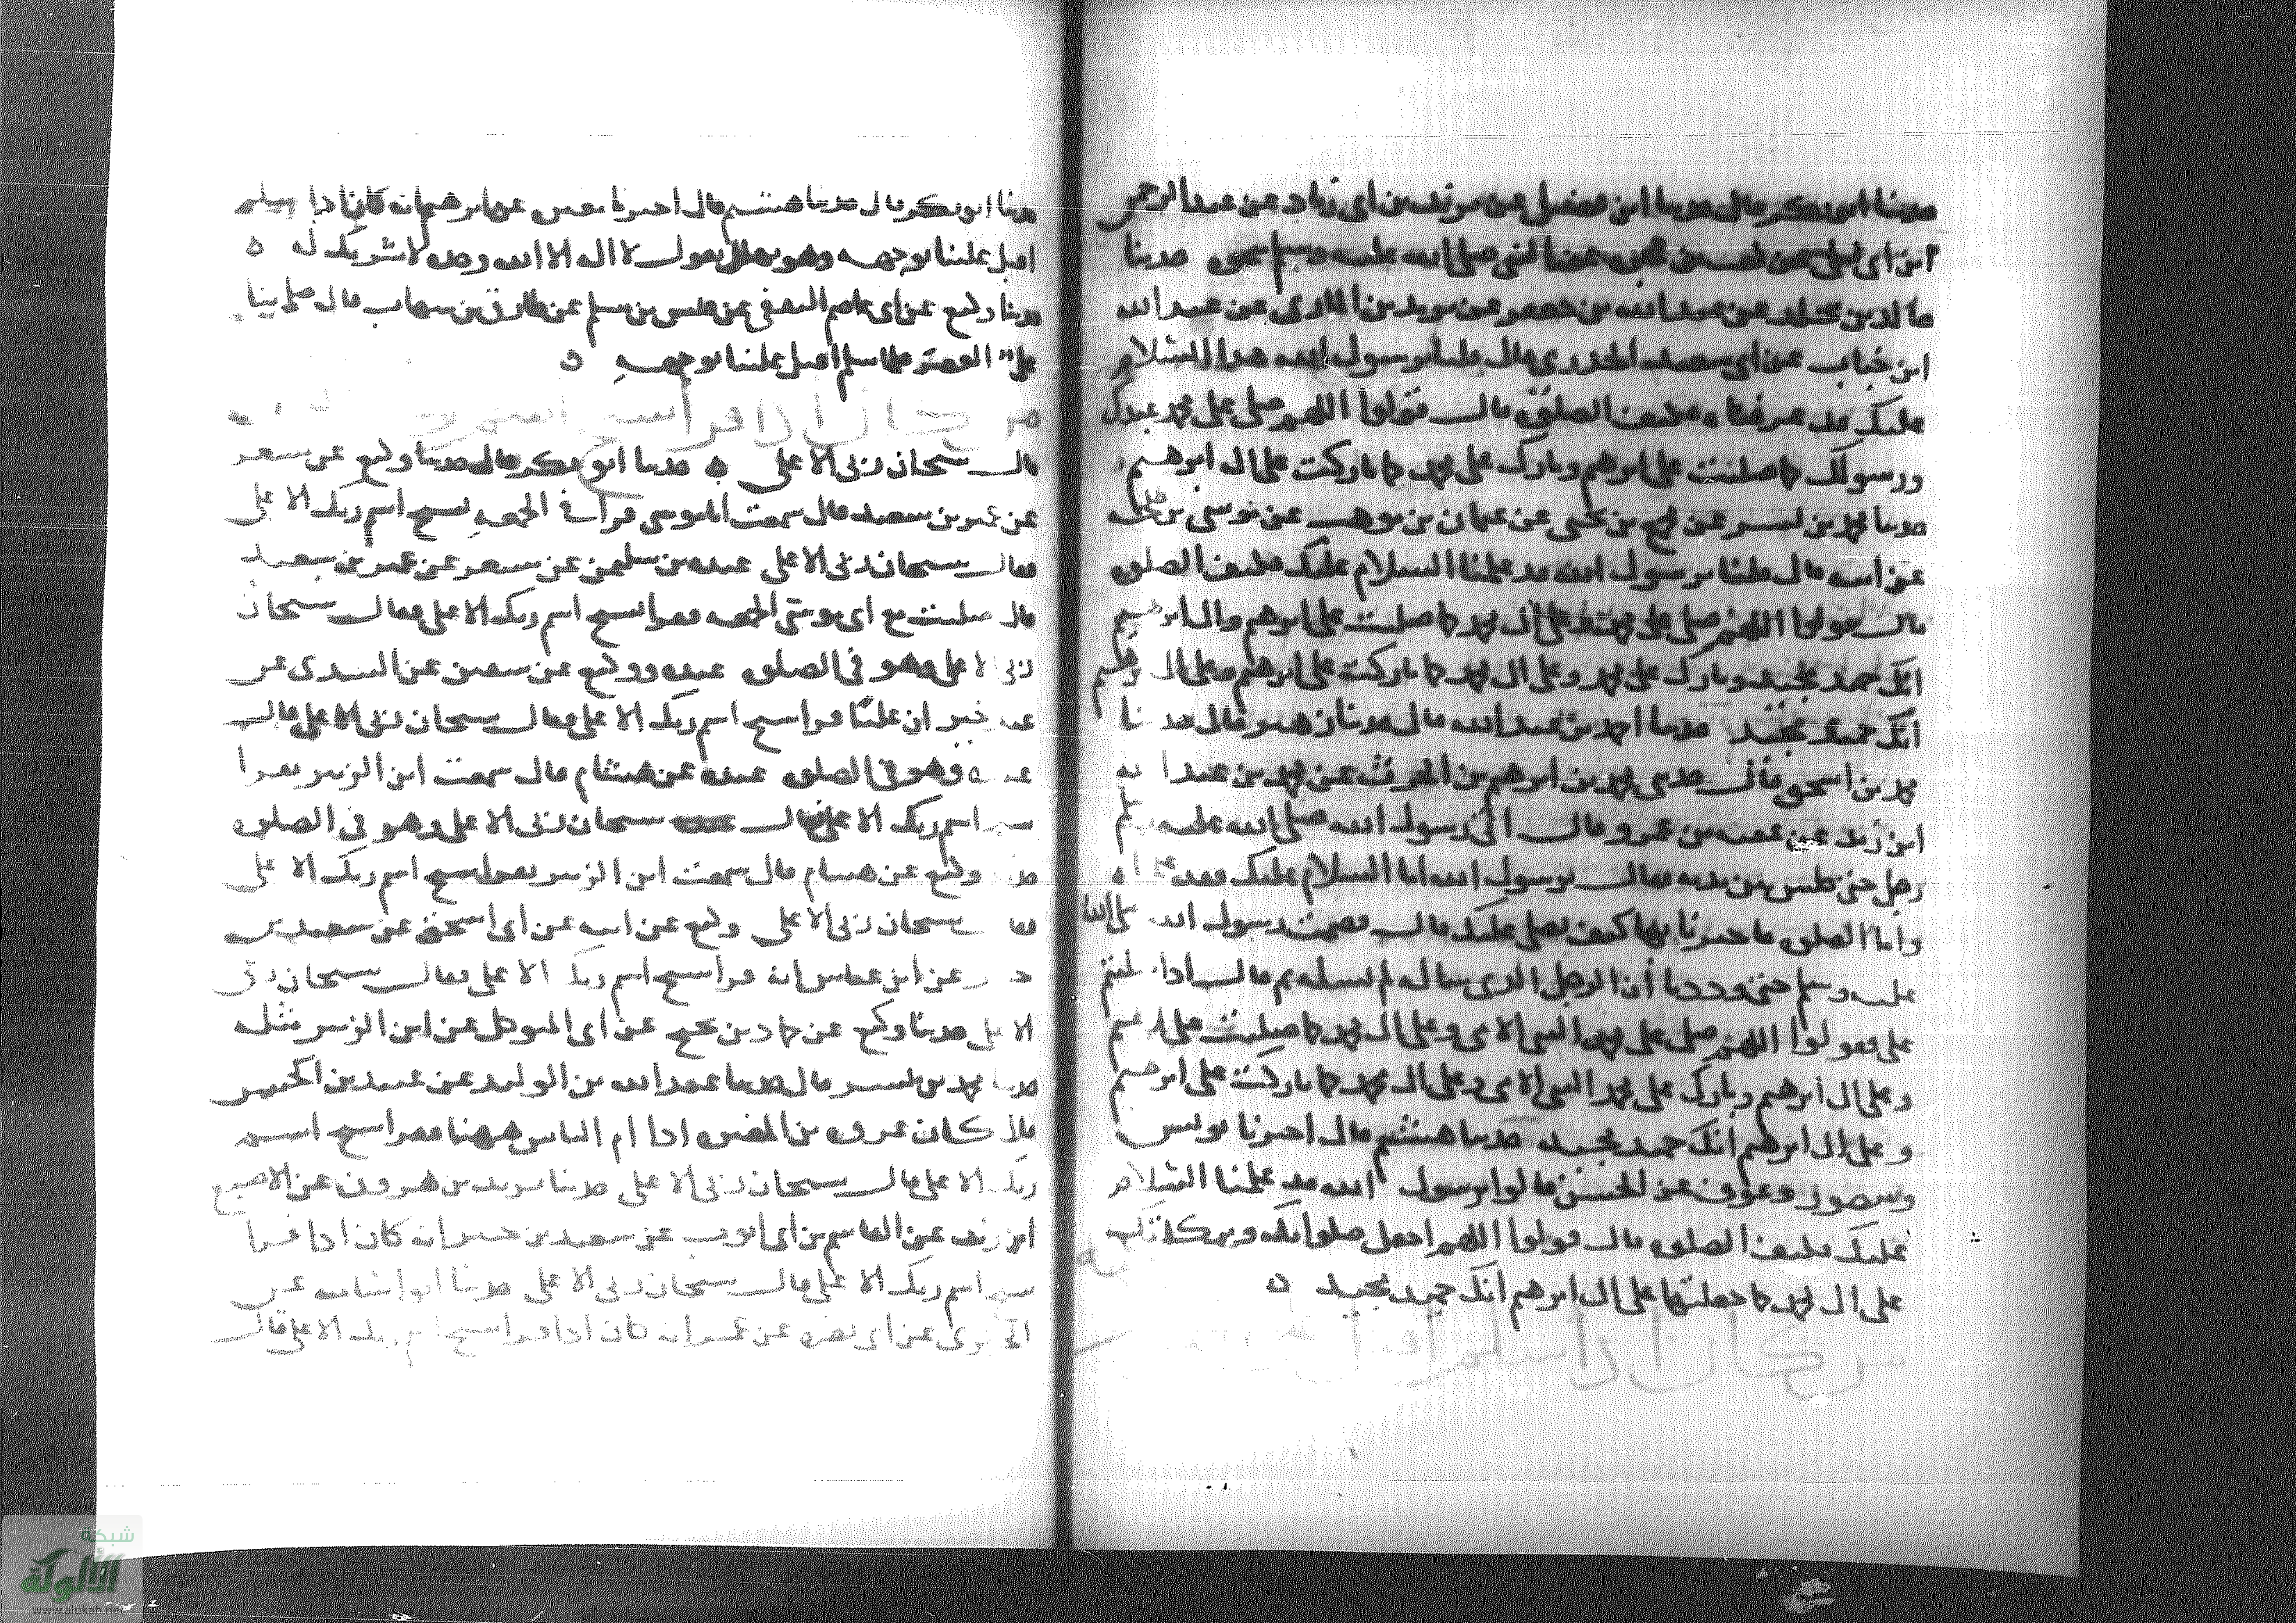 حدثنا ابو بكر قال حدثنا ابن فضيل عن يزيد بن ابي زياد عن عبد الرحمن
ابن ابي ليلى عن كعب بن عجره عن النبي صلى الله عليه وسلم بنحوه حدثنا
خالد بن مخلد عن عبد الله بن جعفر عن يزيد بن الهادي عن عبد الله
ابن خباب عن ابي سعيد الخدري قال قلنا يرسول الله هذا السلام
عليك قد عرفناه فكيف الصلوة قال قولوا اللهم صل على محمد عبدك
ورسولك كما صليت على ابرهيم وبارك على محمد كما باركت على ال ابرهيم
حدثنا محمد بن بشر عن مجمع بن يحيى عن عثمان بن موهب عن موسى بن طلحه
عن ابيه قال قلنا يرسول الله قد علمنا السلام عليك فكيف الصلوه
قال قولوا اللهم صل على محمد وعلى ال محمد كما صليت على ابرهيم وال ابرهيم
انك حميد مجيد وبارك على محمد وعلى ال محمد كما باركت على ابرهيم وعلى ال ابرهيم
انك حميد مجيد حدثنا احمد بن عبد الله قال حدثنا زهير قال حدثنا
محمد بن اسحق قال حدثني محمد بن ابرهيم بن الحرث عن محمد بن عبد الله
ابن زيد عن عقبه بن عمرو قال اتى رسول الله صلى الله عليه وسلم
رجل حتى جلس بين يديه فقال يرسول الله اما السلام عليك فقد عرفناه
واما الصلوه فاخبرنا بها كيف نصلي عليك قال فصمت رسول الله صلى الله
عليه وسلم حتى وددنا أن الرجل الذي ساله لم يسله ثم قال اذا صليتم
علي فقولوا اللهم صل على محمد النبي الامي وعلى ال محمد كما صليت على ابرهيم
وعلى ال ابرهيم وبارك على محمد النبي الامي وعلى ال محمد كما باركت على ابرهيم
وعلى ال ابرهيم انك حميد مجيد حدثنا هشيم قال اخبرنا يونس
ومنصور وعوف عن الحسن قالوا يرسول الله قد علمنا السلام
عليك فكيف الصلوه قال قولوا اللهم اجعل صلواتك وبركاتك
على ال محمد كما جعلتها على ال ابرهيم انك حميد مجيد ه
حدثنا ابو بكر قال حدثنا هشيم قال اخبرنا مغيره عن ابرهيم انه كان اذا سلم
اقبل علينا بوجهه وهو يقول لا اله الا الله وحده لا شريك له ه
حدثنا وكيع عن ابي عاصم الثقفي عن قيس بن مسلم عن طارق بن شهاب قال صلى بنا
علي العصر فلما سلم اقبل علينا بوجهه ه
قال سبحان ربي الاعلى ه حدثنا ابو بكر قال حدثنا وكيع عن مسعر
عن عمير بن سعيد قال سمعت ابا موسى قرا في الجمعه بسبح اسم ربك الاعلى
فقال سبحان ربي الاعلى عبده بن سليمن عن مسعر عن عمير بن سعيد
قال صليت مع ابي موسى الجمعه فقرا بسبح اسم ربك الاعلى فقال سبحان
ربي الاعلى وهو في الصلوه عبده ووكيع عن سفين عن السدي عن
عبد خير ان عليا قرا سبح اسم ربك الاعلى فقال سبحان ربي الاعلى قال
عبده وهو في الصلوه عبده عن هشام قال سمعت ابن الزبير يقرا
سبح اسم ربك الاعلى فقال سبحان ربي الاعلى وهو في الصلوه
حدثنا وكيع عن هشام قال سمعت ابن الزبير يقرا سبح اسم ربك الاعلى
فقال سبحان ربي الاعلى وكيع عن ابيه عن ابي اسحق عن سعيد بن
جبير عن ابن عباس انه قرا سبح اسم ربك الاعلى فقال سبحان ربي
الاعلى حدثنا وكيع عن حماد بن نجيح عن ابي المتوكل عن ابن الزبير مثله
حدثنا محمد بن بشر قال حدثنا عبد الله بن الوليد عن عبيد بن الحسن
قال كان عروه بن المغيره اذا ام الناس ههنا فقرا سبح اسم
ربك الاعلى قال سبحان ربي الاعلى حدثنا يزيد بن هرون عن الاصبع
ابن زيد عن القاسم بن ابي ايوب عن سعيد بن جبير انه كان اذا قرا
سبح اسم ربك الاعلى قال سبحان ربي الاعلى حدثنا ابو اسامه عن
الجريري عن ابي نضره عن عمر انه كان اذا قرا سبح اسم ربك الاعلى قال
شبكة
الألوكة
www.alukah.net